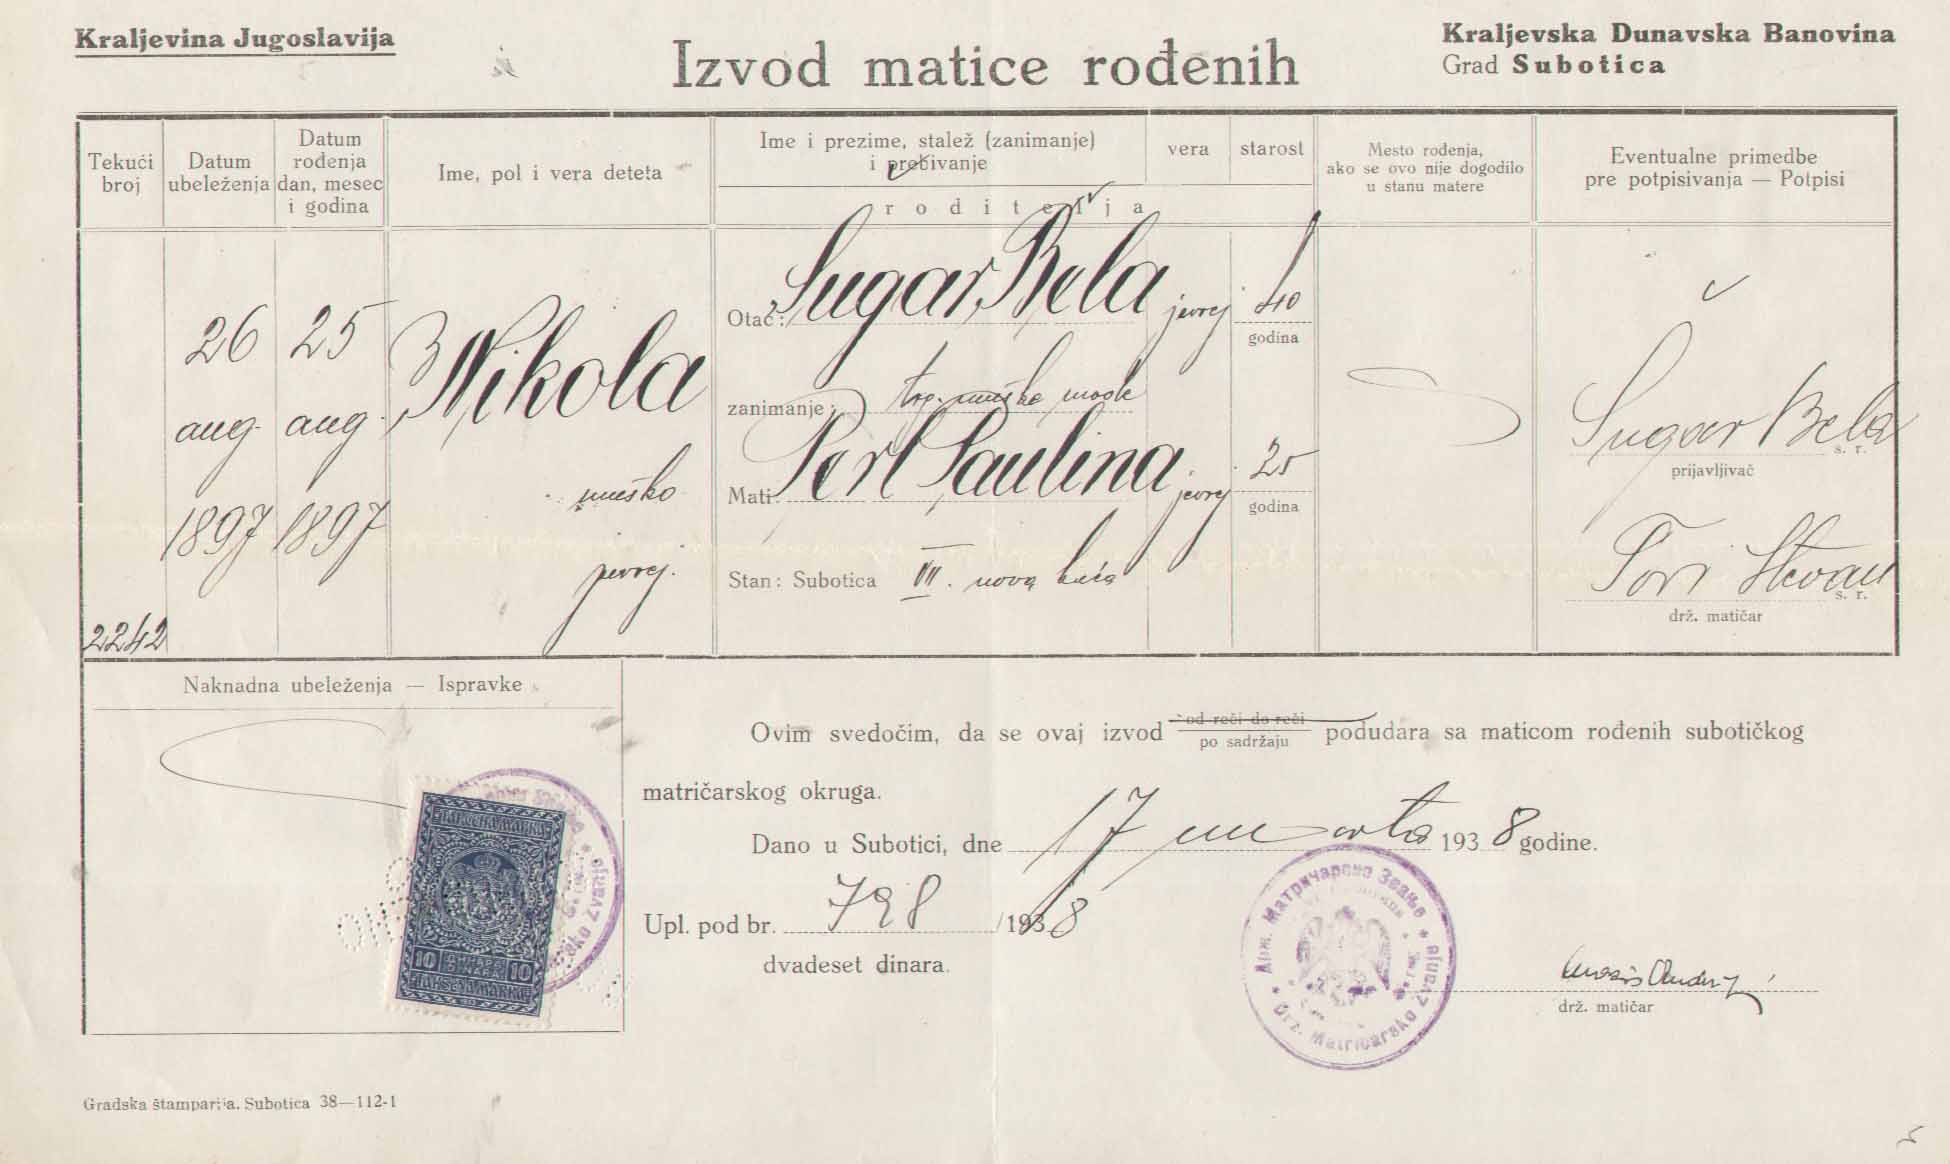 Kraljevina Jugoslavija
Izvod matice rođenih
Kraljevska Dunavska Banovina
Grad Subotica
Tekući broj
Datum ubeleženja
Datum rođenja dan, mesec i godina
Ime, pol i vera deteta
Ime i prezime, stalež (zanimanje) i prebivanje
roditelja
vera
starost
Mesto rođenja, ako se ovo nije dogodilo u stanu matere
Eventualne primedbe pre potpisivanja — Potpisi
2242
26 aug. 1897
25 aug. 1897
Nikola
muško
jevrej.
Otac: Sugar Bela jevrej 40
godina
zanimanje: trg. muške mode
Mati: Perl Paulina jevrej 25
godina
Stan: Subotica VII. nova kuća
Sugar Bela s. r.
prijavljivač
Stevan s. r.
drž. matičar
Naknadna ubeleženja — Ispravke
Ovim svedočim, da se ovaj izvod od reči do reči / po sadržaju podudara sa maticom rođenih subotičkog
matričarskog okruga.
Dano u Subotici, dne 17 marta 1938 godine.
Upl. pod br. 798 /1938
dvadeset dinara.
drž. matičar
ТАКСЕНА МАРКА
10 ДИНАРА DINARA 10
TAKSENA MARKA
Држ. Матричарско Звање
Drž. Matričarsko Zvanje
Gradska štamparija, Subotica 38—112-1